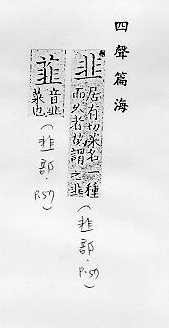 四聲篇海
韭 居有切菜名一種
而久者故謂之韭
(韭部.P.57)
韮 音韭
菜也
(韭部.P.57)